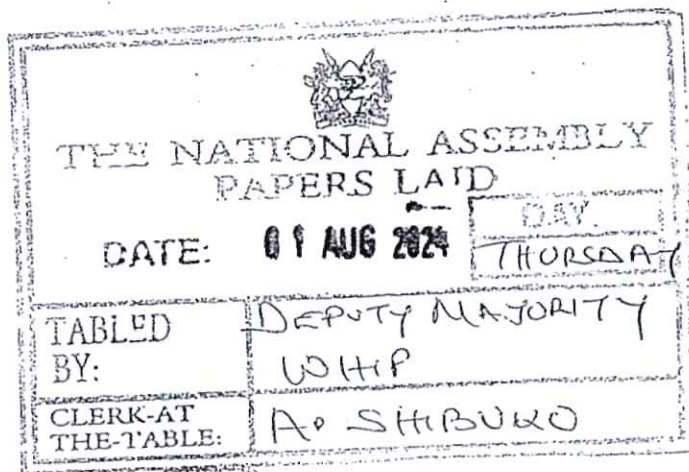 THE NATIONAL ASSEMBLY
PAPERS LAID
DATE: 01 AUG 2024
DAY.
THURSDAY
TABLED BY:
DEPUTY MAJORITY
WHIP
CLERK-AT
THE-TABLE:
A. SHIBUKO